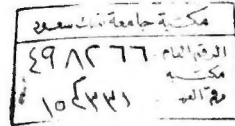 مكتبة جامعة الملك سعود
الرقم العام ٤٩٨٢٦٦
مكتبه
١٥٤٣٣١